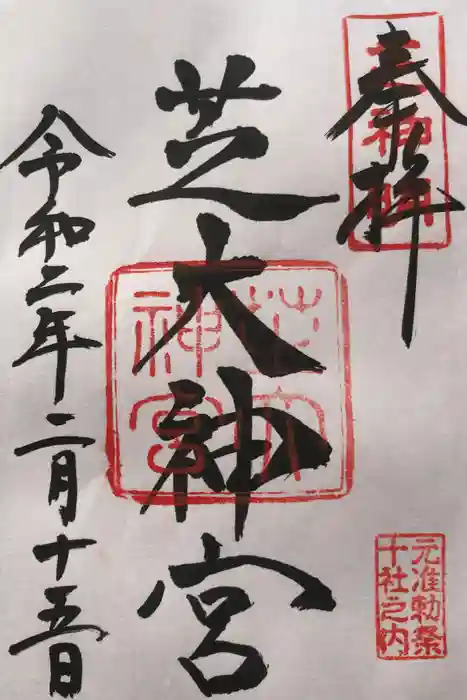 奉拝
芝大神宮
令和二年二月十五日
芝大
神宮
元准勅祭
十社之内